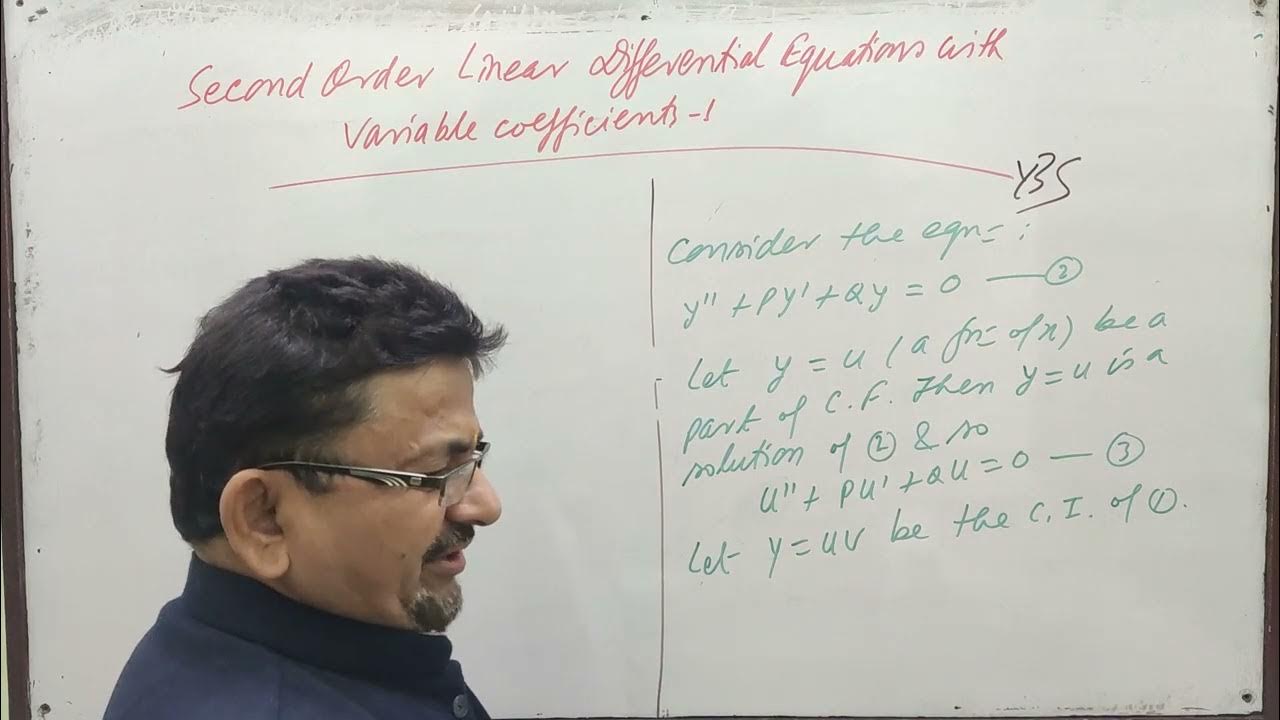 Second Order Linear Differential Equations with
Variable coefficients-1
YBS
Consider the eqn= :
y'' + Py' + Qy = 0 — ②
Let y = u (a fn= of x) be a
part of C.F. Then y = u is a
solution of ② & so
u'' + Pu' + Qu = 0 — ③
Let y = uv be the C.I. of ①.